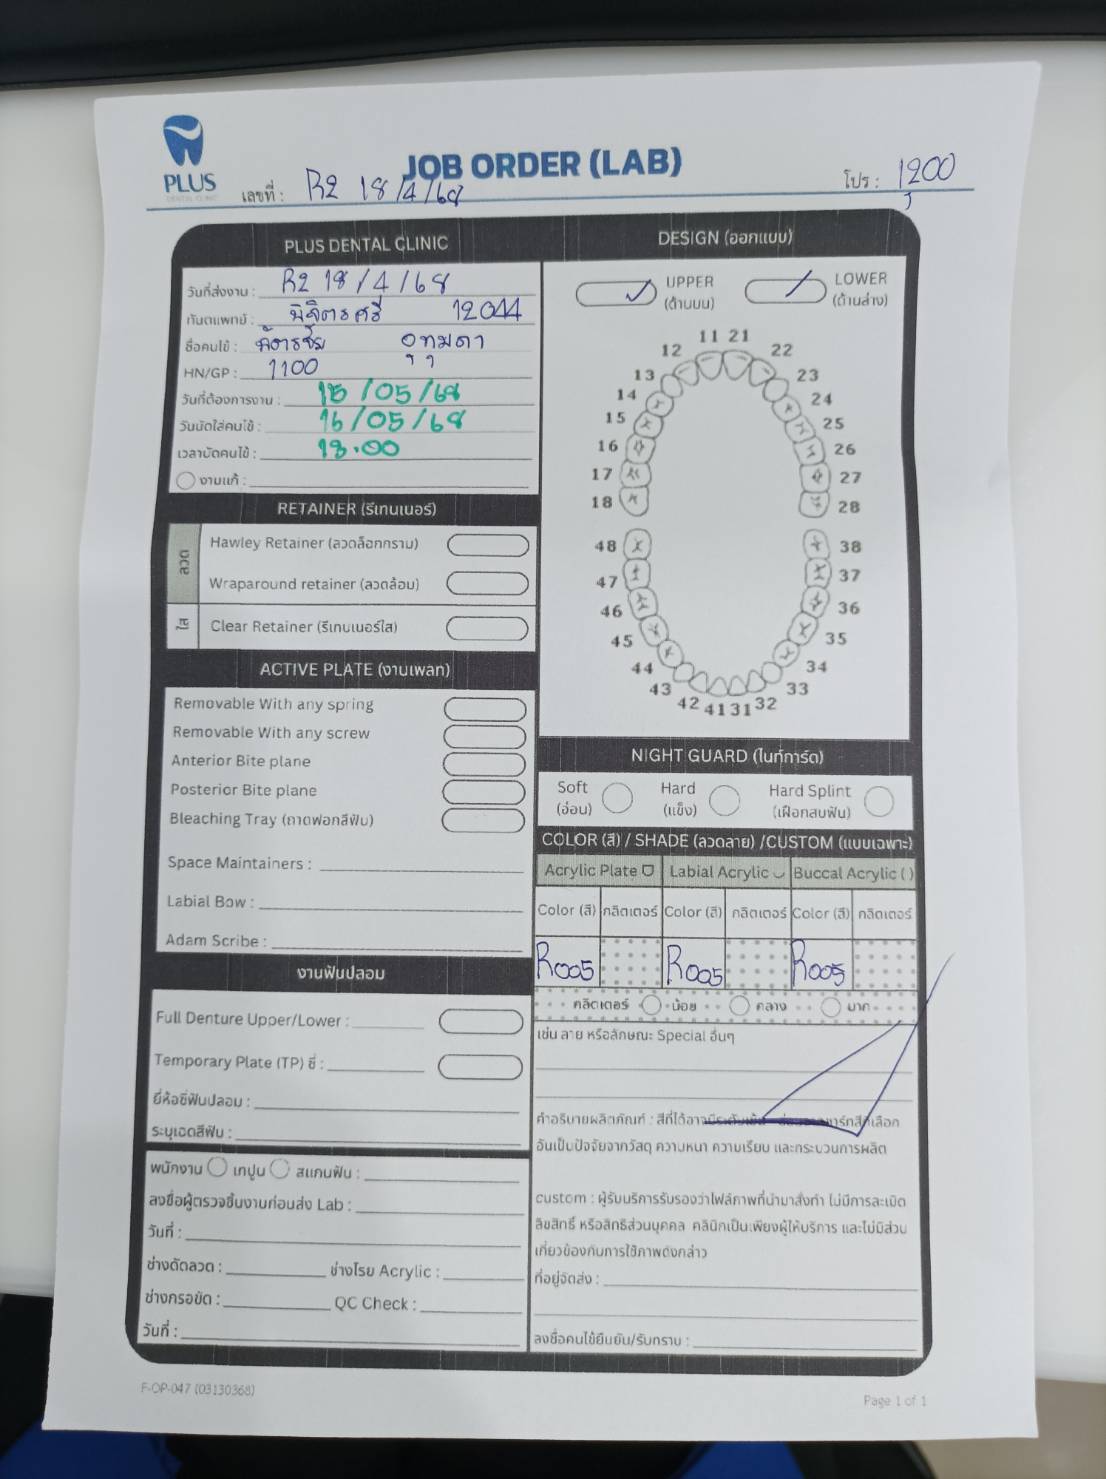 PLUS
DENTAL CLINIC
JOB ORDER (LAB)
เลขที่ : R2 18/4/68
โปร : 1200
PLUS DENTAL CLINIC
วันที่สั่งงาน : R2 18/4/68
ทันตแพทย์ : พิจิตรศรี 12044
ชื่อคนไข้ :
HN/GP : 1100
วันที่ต้องการงาน : 15/05/68
วันนัดใส่คนไข้ : 16/05/68
เวลานัดคนไข้ : 18.00
งานแก้ :
RETAINER (รีเทนเนอร์)
ลวด
Hawley Retainer (ลวดล็อกกราม)
Wraparound retainer (ลวดล้อม)
ใส
Clear Retainer (รีเทนเนอร์ใส)
ACTIVE PLATE (งานเพลท)
Removable With any spring
Removable With any screw
Anterior Bite plane
Posterior Bite plane
Bleaching Tray (ถาดฟอกสีฟัน)
Space Maintainers :
Labial Bow :
Adam Scribe :
งานฟันปลอม
Full Denture Upper/Lower :
Temporary Plate (TP) ซี่ :
ยี่ห้อซี่ฟันปลอม :
ระบุเฉดสีฟัน :
พนักงาน เทปูน สแกนฟัน :
ลงชื่อผู้ตรวจชิ้นงานก่อนส่ง Lab :
วันที่ :
ช่างดัดลวด : ช่างโรย Acrylic :
ช่างกรอขัด : QC Check :
วันที่ :
DESIGN (ออกแบบ)
UPPER
(ด้านบน)
LOWER
(ด้านล่าง)
11 21
12 22
13 23
14 24
15 25
16 26
17 27
18 28
48 38
47 37
46 36
45 35
44 34
43 33
42 41 31 32
NIGHT GUARD (ไนท์การ์ด)
Soft
(อ่อน)
Hard
(แข็ง)
Hard Splint
(เฝือกสบฟัน)
COLOR (สี) / SHADE (ลวดลาย) /CUSTOM (แบบเฉพาะ)
Acrylic Plate Labial Acrylic Buccal Acrylic ( )
Color (สี) กลิตเตอร์ Color (สี) กลิตเตอร์ Color (สี) กลิตเตอร์
R005 R005 R005
กลิตเตอร์ น้อย กลาง มาก
เช่น ลาย หรือลักษณะ Special อื่นๆ
คำอธิบายผลิตภัณฑ์ : สีที่ได้อาจมีระดับเข้ม
อันเป็นปัจจัยจากวัสดุ ความหนา ความเรียบ และกระบวนการผลิต
custom : ผู้รับบริการรับรองว่าไฟล์ภาพที่นำมาสั่งทำ ไม่มีการละเมิด
ลิขสิทธิ์ หรือสิทธิส่วนบุคคล คลินิกเป็นเพียงผู้ให้บริการ และไม่มีส่วน
เกี่ยวข้องกับการใช้ภาพดังกล่าว
ที่อยู่จัดส่ง :
ลงชื่อคนไข้ยืนยัน/รับทราบ :
F-OP-047 (03130368)
Page 1 of 1